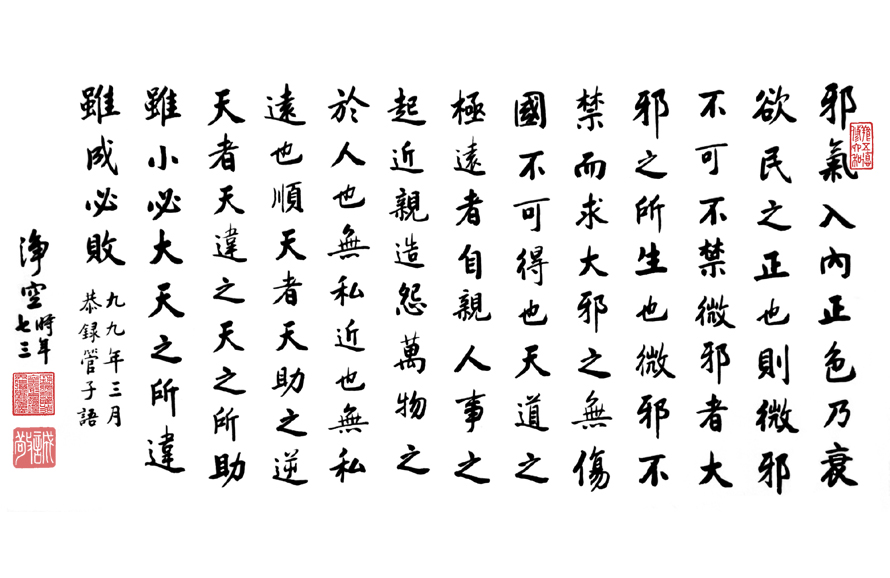 邪氣入內正色乃衰
欲民之正也則微邪
不可不禁微邪者大
邪之所生也微邪不
禁而求大邪之無傷
國不可得也天道之
極遠者自親人事之
起近親造怨萬物之
於人也無私近也無私
遠也順天者天助之逆
天者天違之天之所助
雖小必大天之所違
雖成必敗
九九年三月
恭錄管子語
淨空時年
七三
誠敬